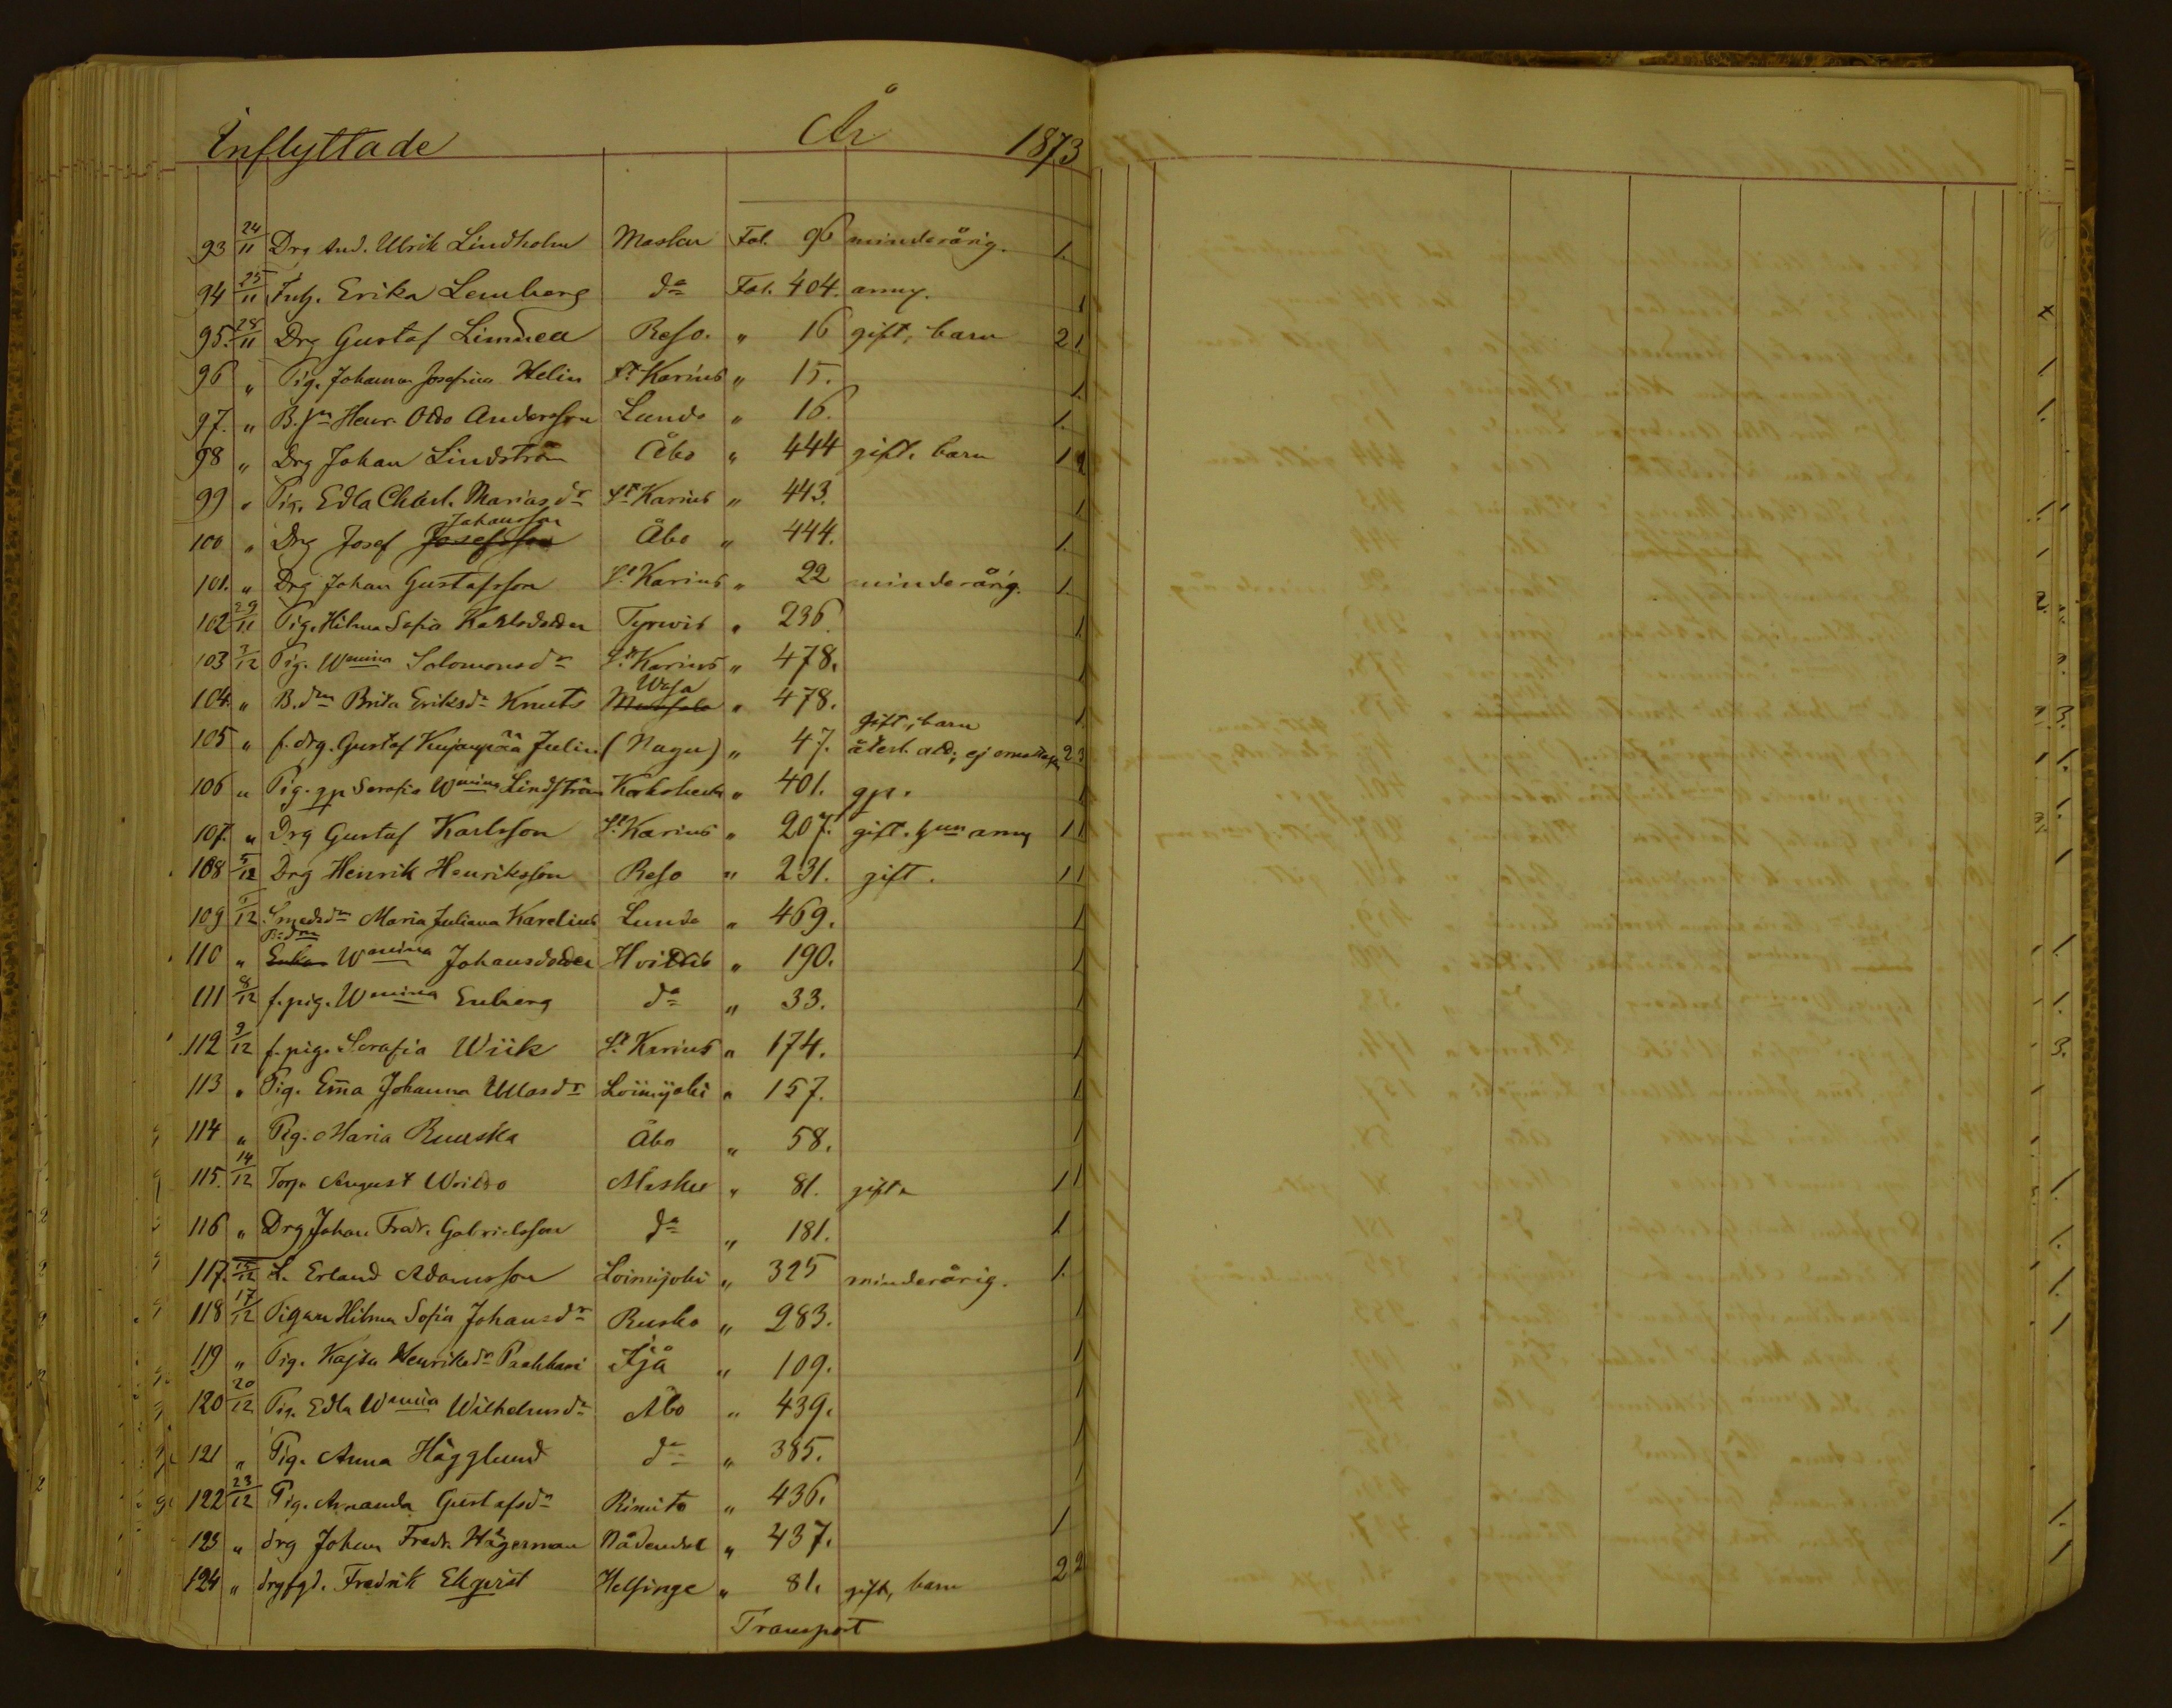 Inflyttade År 1873
93 24/11 Drg And. Ulrik Lindholm Masku Fol. 96 minderårig. 1.
94 25/11 Erika Lemberg do Fol. 404. 1
95. 28/11 Drg Gustaf Linnea Reso. " 16 gift, barn 2 1.
96 " Pig. Johanna Josefina Helin St Karins " 15. 1
97. " B. sn Henr. Otto Andersson Lundo " 16. 1.
98 " Drg Johan Lindström Åbo " 444 gift. barn 1 2
99 " Pig. Edla Charl. Mariasdr St Karins " 443. 1
100 " Drg Josef Josefsson Johansson Åbo " 444. 1.
101. " Drg Johan Gustafsson St Karins " 22 minderårig. 1.
102 29/11 Pig. Hilma Sofia Karlsdotter Tyrvis " 236. 1
103 3/12 Pig. Wmina Salomonsdr St Karins " 478. 1
104. " B. dm Brita Eriksdr Knuts Wasa " 478. 1
105 " f. drg. Gustaf Kujanpää Julin (Nagu) " 47. gift, barn 2 3
106 " Pig. gp Serafia Wmina Lindström " 401. gp. 1
107. " Drg Gustaf Karlsson St Karins " 207. gift. 1 1
108 5/12 Drg Henrik Henriksson Reso " 231. gift. 1 1
109 /12 Smedsdr Maria Juliana Karelius Lundo " 469. 1
110 " Enka B. dm Wmina Johansdotter Hvittis " 190. 1
111 8/12 f. pig. Wmina Enberg do " 33. 1
112 9/12 f. pig. Serafia Wiik St Karins " 174. 1
113 " Pig. Em̄a Johanna Ullasdr Loimijoki " 157. 1
114 " Pig. Maria Ruuska Åbo " 58. 1
115. 14/12 Torp. August Masku " 81. gift 1 1
116 " Drg Johan Fredr. Gabrielsson do " 181. 1
117. 15/12 L. Erland Adamsson Loimijoki " 325 minderårig. 1.
118 17/12 Pigan Hilma Sofia Johansdr Rusko " 283. 1
119 " Pig. Kajsa Henriksdr " 109. 1
120 20/12 Pig. Edla Wmina Wilhelmsdr Åbo " 439. 1
121 " Pig. Anna Hägglund do " 385. 1
122 23/12 Pig. Amanda Gustafsdr Rimito " 436. 1
123 " drg Johan Fredr. Hägerman Nådendal " 437. 1
124 " drgfgd. Fredrik Ekqvist Helsinge " 81. gift, barn 2 2
Transport